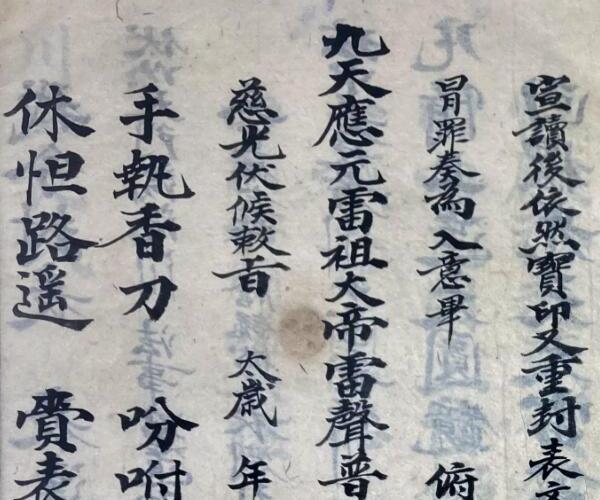 宣讀後依然寶印又重封表
冐罪奏為入意畢 俯
九天應元雷祖大帝雷聲普
慈光伏候敕旨 太歲 年
手執香刀 吩咐
休怛路遥 賫表